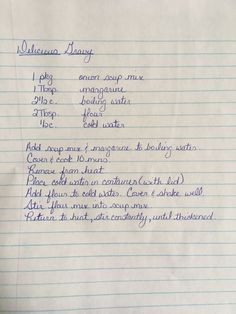 Delicious Gravy
1 pkg onion soup mix
1 Tbsp. margarine
2 1/2 c. boiling water
2 Tbsp. flour
1/2 c. cold water
Add soup mix & margarine to boiling water.
Cover & cook 10 mins.
Remove from heat
Place cold water in container (with lid)
Add flour to cold water. Cover & shake well.
Stir flour mix into soup mix
Return to heat, stir constantly, until thickened.